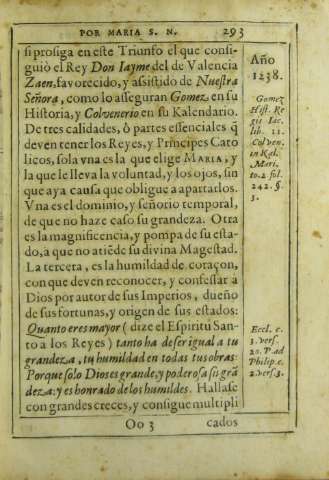 POR MARIA S. N. 293
si prosiga en este Triunfo el que consi-
guiò el Rey Don Iayme del de Valencia
Zaen, favorecido, y assistido de Nuestra
Señora, como lo asseguran Gomez en su
Historia, y Colvenerio en su Kalendario.
De tres calidades, ò partes essenciales q̃
deven tener los Reyes, y Principes Cato
licos, sola vna es la que elige MARIA, y
la que le lleva la voluntad, y los ojos, sin
que aya causa que obligue a apartarlos.
Vna es el dominio, y señorio temporal,
de que no haze caso su grandeza. Otra
es la magnificencia, y pompa de su esta-
do, à que no atiẽde su divina Magestad.
La tercera, es la humildad de coraçon,
con que deven reconocer, y confessar a
Dios por autor de sus Imperios, dueño
de sus fortunas, y origen de sus estados:
Quanto eres mayor (dize el Espiritu San-
to a los Reyes) tanto ha de ser igual a tu
grandeza, tu humildad en todas tus obras:
Porque solo Dios es grande, y poderosa su grã
deza: y es honrado de los humildes. Hallase
con grandes creces, y consigue multipli
Oo 3 cados
Año
1238.
Gomez
Hist. Re
gis Iac.
lib. 11.
Colven.
in Kal.
Mari.
to. 2 fol.
242. §.
3.
Eccl. c.
3. vers.
20. P. ad
Philip. c.
2. vers. 3.